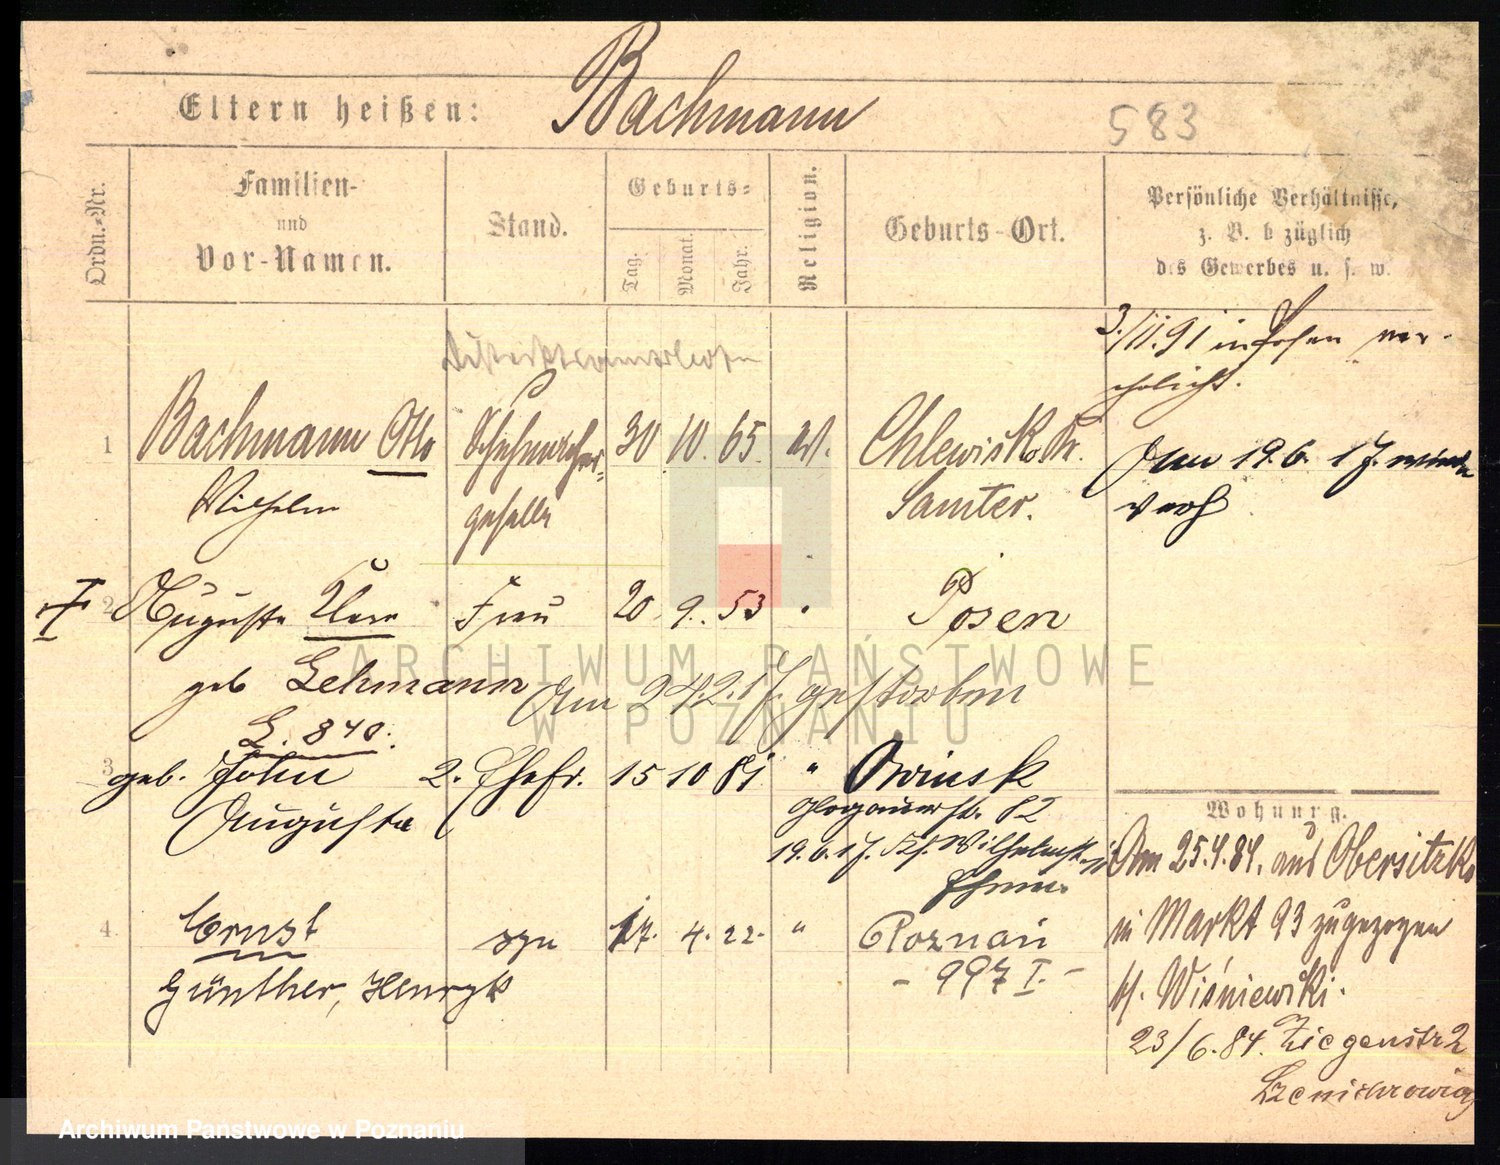 Eltern heißen: Bachmann
583
Ordn.-Nr.
Familien-
und
Vor-Namen.
Stand.
Geburts-
Tag.
Monat.
Jahr.
Religion.
Geburts-Ort.
Persönliche Verhältnisse,
z. B. bezüglich
des Gewerbes u. s. w.
3./11.91 in Posen ver-
ehelicht.
1 Bachmann Otto 30 10. 65 Chlewisk Kr.
Wilhelm geselle Samter.
Am 19.6. 17. wieder
verh
2 Auguste geb Lehmann
Frau 20 9. 53 " Posen
Am 24.2.17. gestorben
G. 840.
3 geb. John 2. Ehefr. 15 10 81 " Owinsk
Auguste
Glogauerstr. 82
19.6.17.
4. Ernst syn 17. 4. 22. " Poznań
Günther, Henryk - 997 I. -
Wohnung.
Am 25.4.84. aus Obersitzko
in Markt 93 zugezogen
b/. Wiśniewski.
23/6.84. Ziegenstr 2
ARCHIWUM PAŃSTWOWE
W POZNANIU
Archiwum Państwowe w Poznaniu